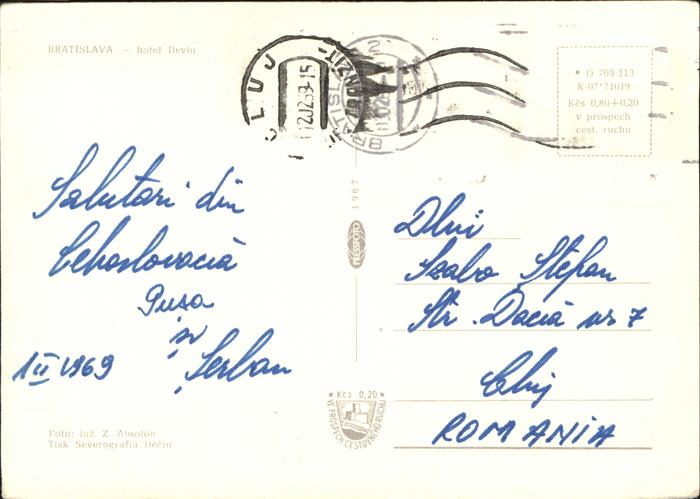 BRATISLAVA — hotel Devín
CLUJ
12.02.69-15
BRATISLAVA 2
• O 769-113
K-07*71019
Kčs 0,80+0,20
v prospech
cest. ruchu
Salutari din
Cehoslovacia
Pusa
și
Șerban
1 II 1969
1967
PRESSFOTO
Dlui
Szabo Ștefan
Str. Dacia nr 7
Cluj
ROMANIA
* Kčs 0,20 *
VE PROSPĚCH CESTOVNÍHO RUCHU
Foto: inž. Z. Absolón
Tisk Severografia Děčín